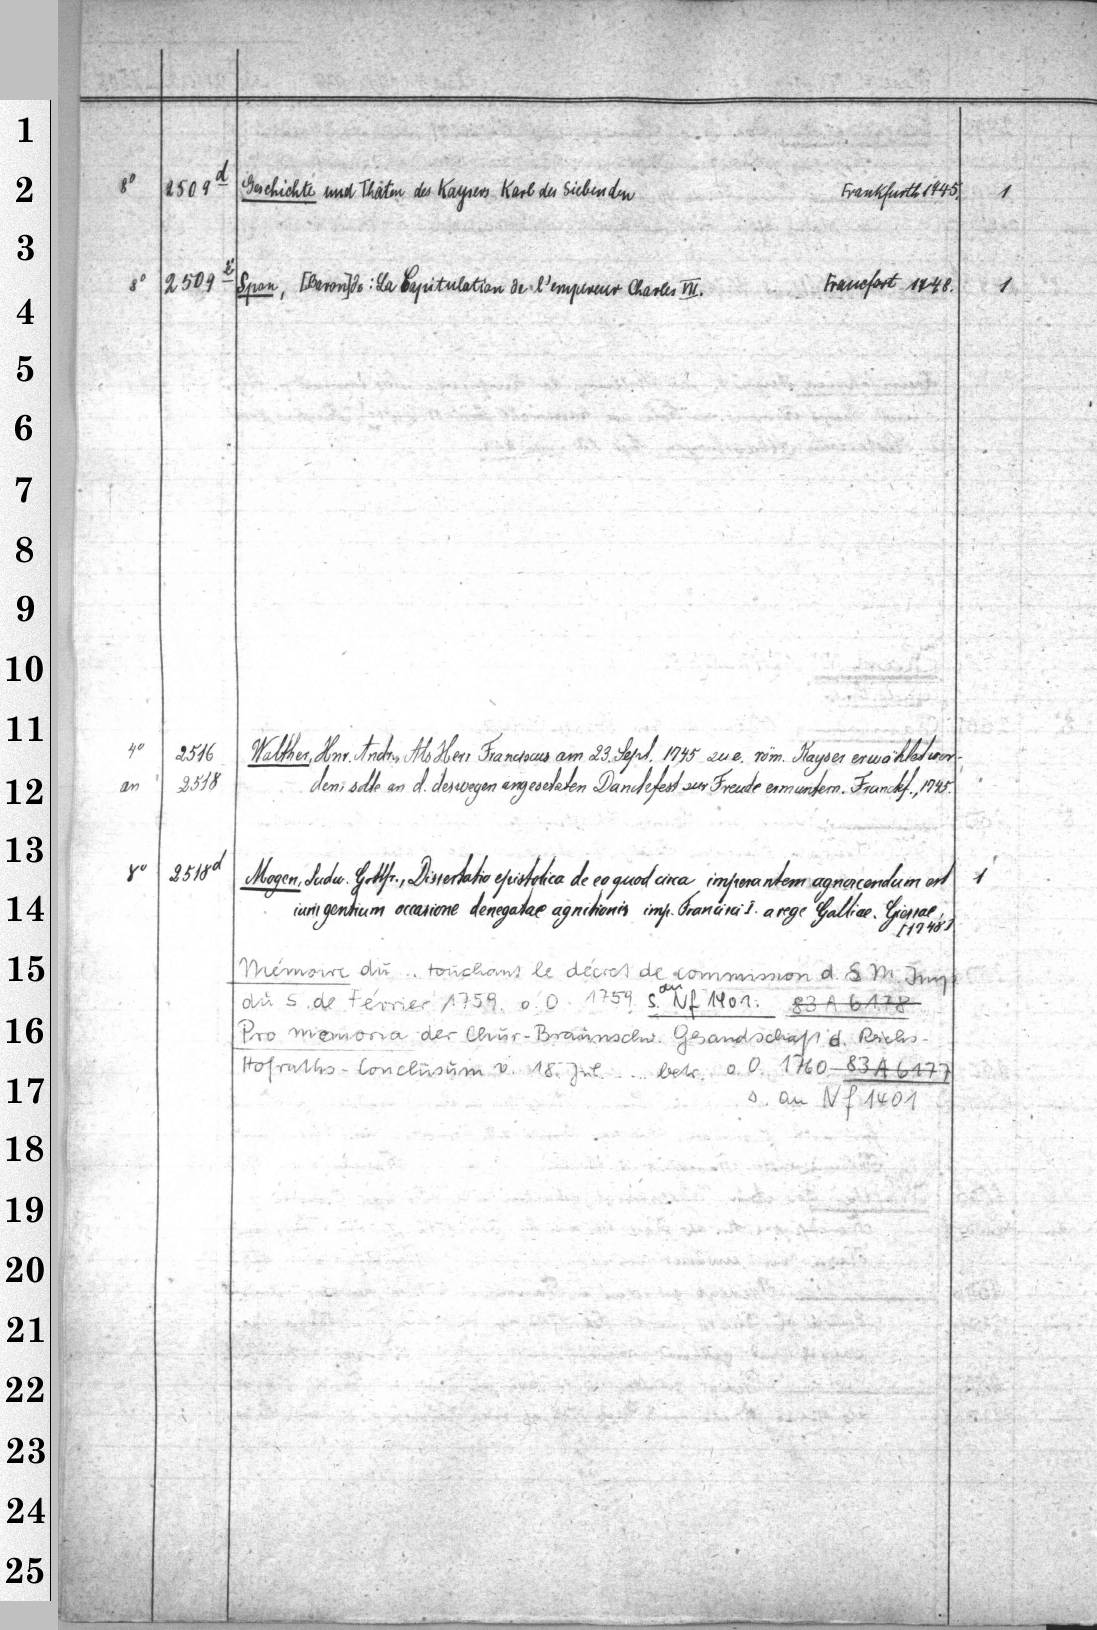 1
2
3
4
5
6
7
8
9
10
11
12
13
14
15
16
17
18
19
20
21
22
23
24
25
8° 2509 d Geschichte und Thaten des Kaysers Karl des Siebenden Frankfurth 1745. 1
8° 2509 Spon, [Baron] de: La Capitulation de l'empereur Charles VII. Francfort 1748. 1
4° 2516 Walther, Hnr. Andr., Als Herr Franciscus am 23. Sept. 1745 zu e. röm. Kayser erwählet wor-
an 2518 den, sollte an d. deswegen angesetzten Danckfest zur Freude ermuntern. Franckf., 1745.
8° 2518 d Mogen, Ludw. Gottfr., Dissertatio epistolica de eo quod circa imperantem agnoscendum est 1
iuris gentium occasione denegatae agnitionis imp. Francisci I. a rege Galliae. Giessae,
[1748]
Mémoire du .. touchant le décret de commission d. S. M. Imp.
du 5. de Février 1759. o. O. 1759 s. an Nf 1401. 83 A 6178
Pro memoria der Chur-Braunschw. Gesandschaft d. Reichs-
Hofraths-Conclusum v. 18. Jul. ... betr. o. O. 1760 83 A 6177
s. an Nf 1401